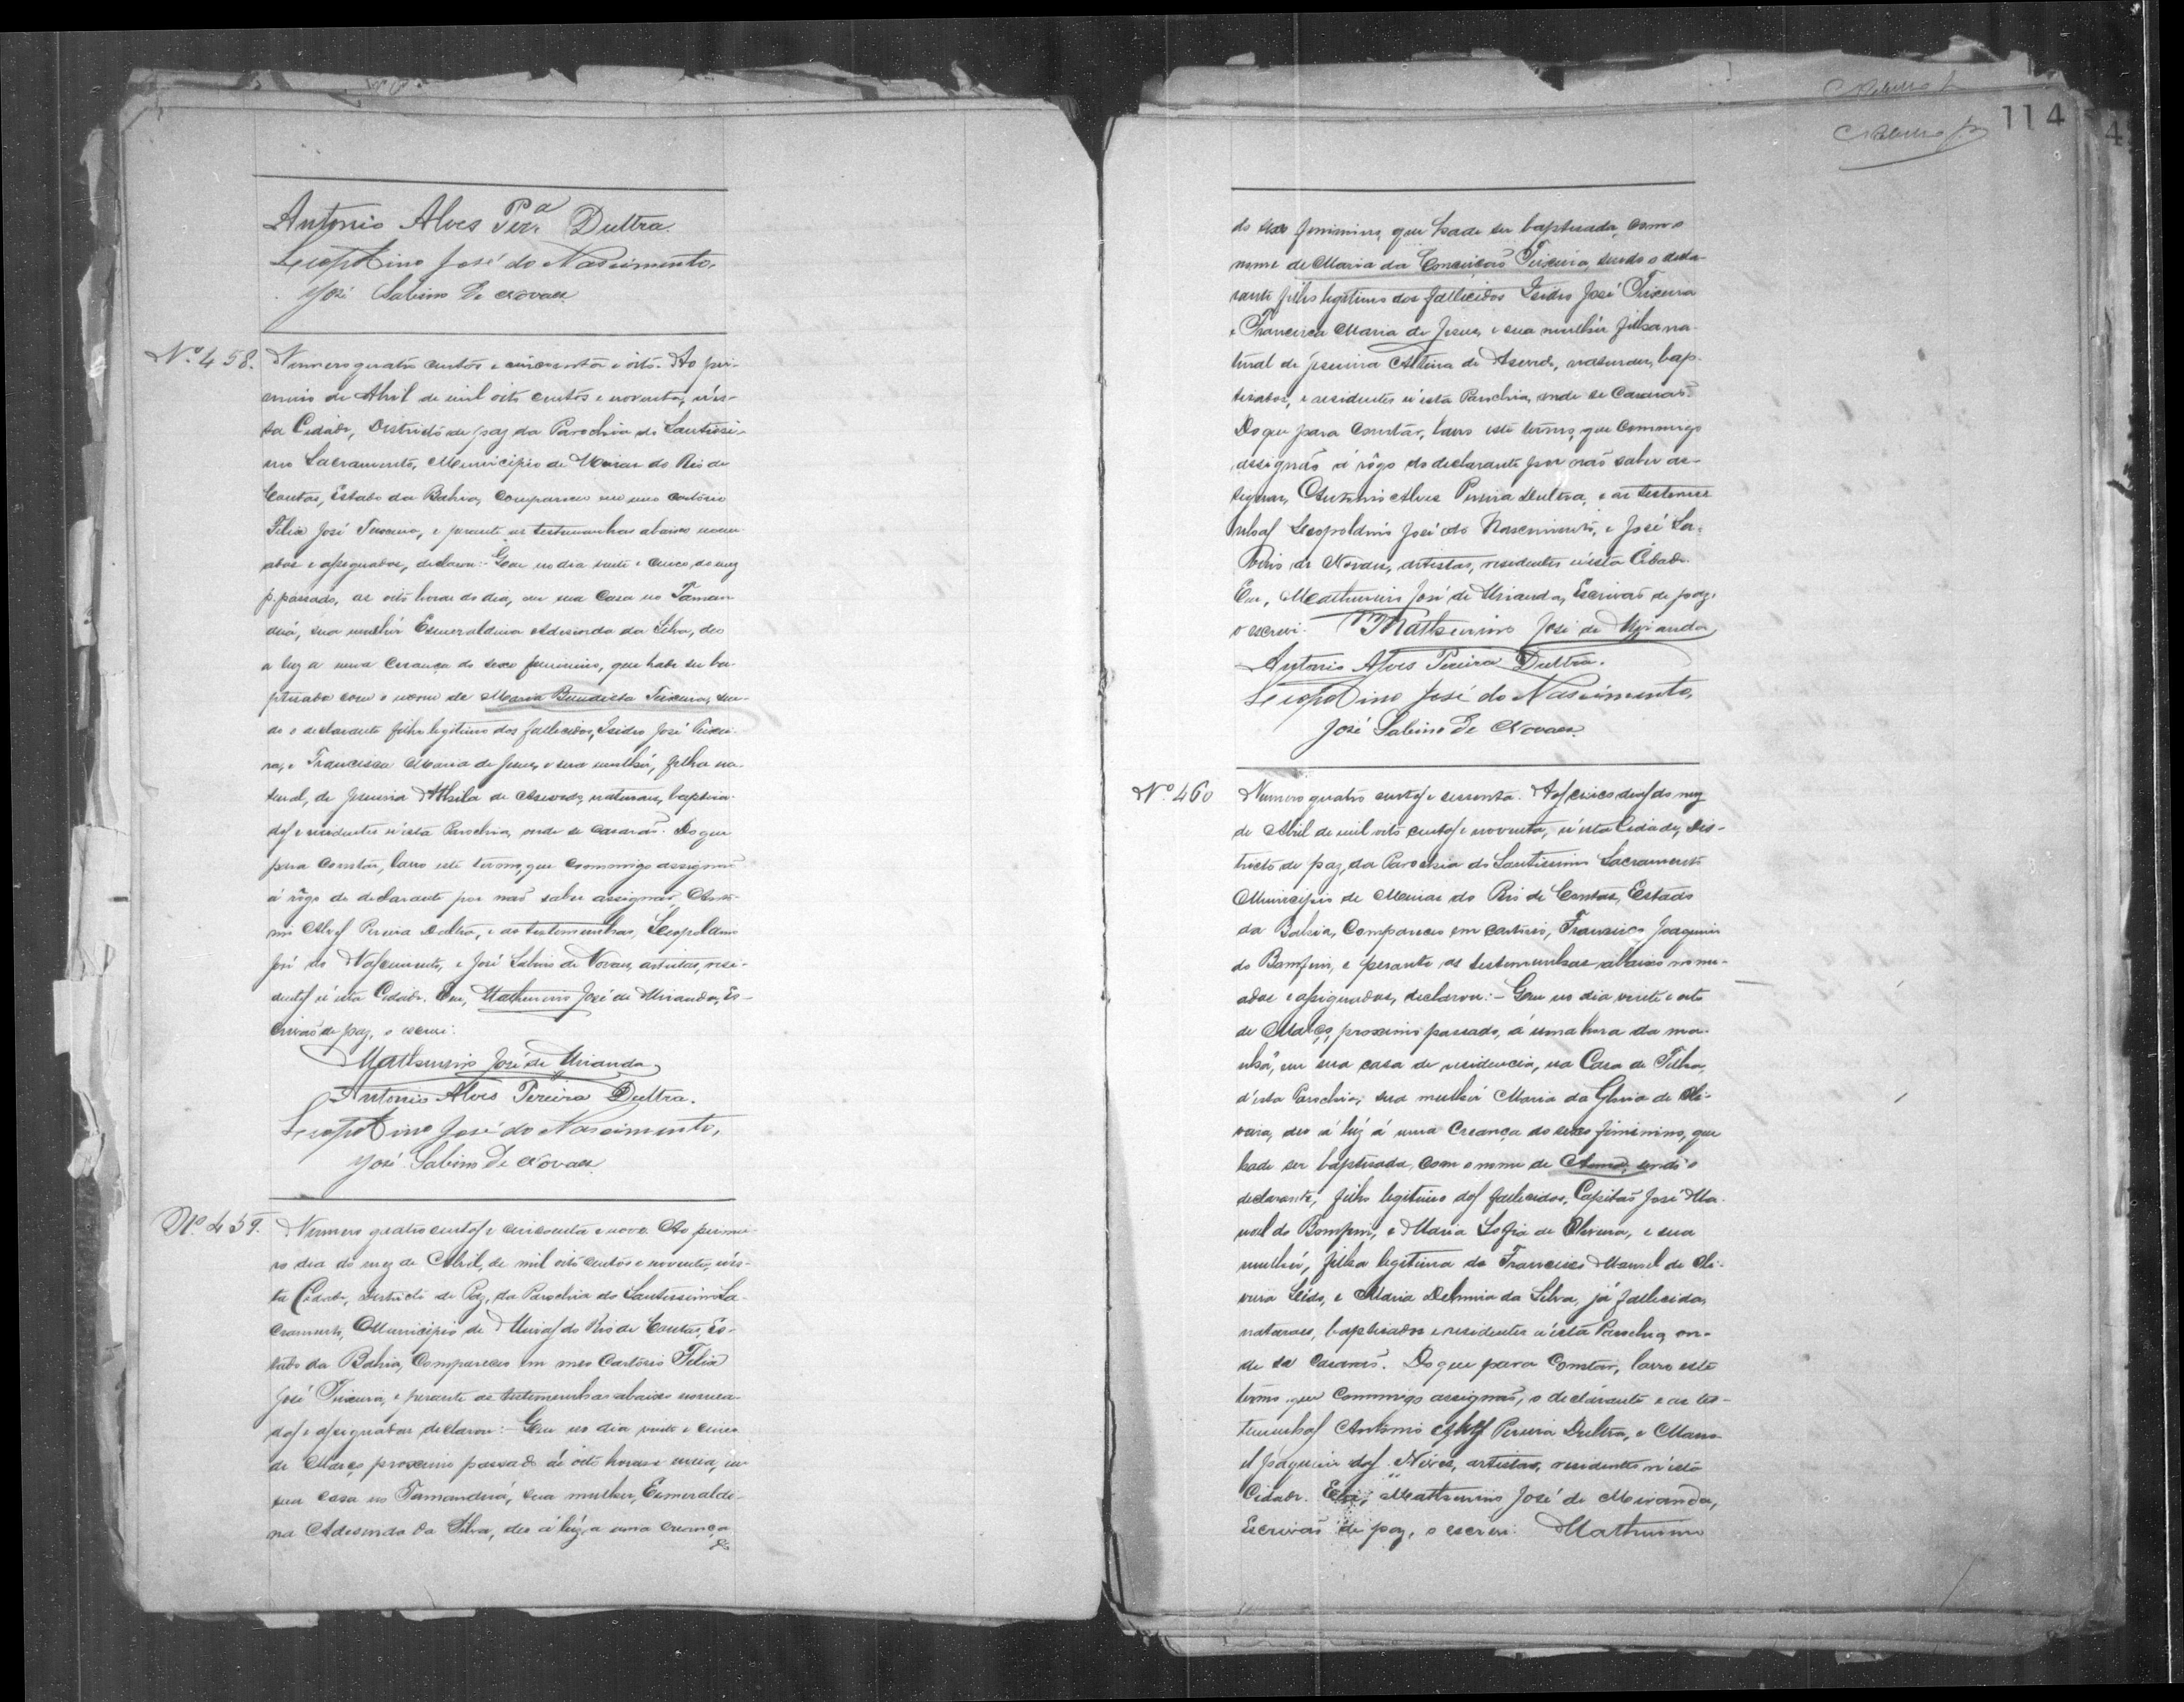 Antonio Alves Per.ª Dultra.
Leopoldino José do Nascimento,
José Sabino de Novaes
Nº 458.
Numero quatro centos e cincoenta e oito. Ao pri-
meiro de Abril de mil oito centos e noventa, n'es-
ta Cidade, Districto de paz da Parochia do Santissi-
mo Sacramento, Municipio de Minas do Rio de
Contas, Estado da Bahia, compareceu em meo cartorio
Felix José Teixeira, e perante as testemunhas abaixo nome-
adas e assignadas, declarou:- Que no dia vinte e cinco, do mez
p. passado, as oito horas do dia, em sua casa no Taman-
duá, sua mulhér Esmeraldina Adesinda da Silva, deo
a luz a uma creança do sexo feminino, que hade ser ba-
ptisada com o nome de Maria Benedicta Teixeira, sen-
do o declarante filho legitimo dos fallecidos, Isidro José Teixei-
ra, e Francisca Maria de Jesus, e sua mulhér, filha na-
tural, de Jesuina de Asevedo, naturaes, baptisa-
dos e residentes n'esta Parochia, onde se casarão. Do que
para constar, lavro este termo, que commigo assignão
á rôgo do declarante por não saber assignar, Anto-
nio Alves Pereira Dultra, e as testemunhas, Leopoldino
José do Nascimento, e José Sabino de Novaes, artistas, resi-
dentes n'esta Cidade. Eu, Mathurino José de Miranda, Es-
crivão de paz, o escrevi.
Mathurino José de Miranda
Antonio Alves Pereira Dultra.
Leopoldino José do Nascimento,
José Sabino de Novaes
Nº 459.
Numero quatro centos e cincoenta e nove. Ao primei-
ro dia do mez de Abril, de mil oito centos e noventa, n'es-
ta Cidade, Districto de Paz, da Parochia do Santissimo Sa-
cramento, Municipio de Minas do Rio de Contas, Es-
tado da Bahia, Compareceo em meo Cartorio Felix
José Teixeira, e perante as testemunhas abaixo nomea-
das e assignadas declarou:- Que no dia vinte e cinco
de Março proximo passado ás oito horas e meia, em
sua casa no Tamanduá, sua mulher, Esmeraldi-
na Adesinda da Silva, deo á luz, a uma creança
114
do sexo feminino, que hade ser baptisada, com o
nome de Maria da Conceição Teixeira, sendo o decla-
rante filho legitimo dos fallecidos Isidro José Teixeira
e Francisca Maria de Jesus, e sua mulhér filha na-
tural de Jesuina de Asevedo, naturaes, bap-
tisados, e residentes n'esta Parochia, onde se casarão.
Do que para constar, lavro este termo, que commigo
assignão á rôgo do declarante por não saber as-
signar, Antonio Alves Pereira Dultra, e as testemu-
nhas Leopoldino José do Nascimento, e José Sa-
bino de Novaes, artistas, residentes n'esta Cidade.
Eu, Mathurino José de Miranda, Escrivão de paz,
o escrevi. Mathurino José de Miranda
Antonio Alves Pereira Dultra.
Leopoldino José do Nascimento,
José Sabino de Novaes.
Nº 460
Numero quatro centos e sessenta. Aos cinco dias do mez
de Abril de mil oito centos e noventa, n'esta Cidade, Dis-
tricto de paz, da Parochia do Santissimo Sacramento
Municipio de Minas do Rio de Contas, Estado
da Bahia, Compareceo em cartorio, Francisco Joaquim
do Bomfim, e perante as testemunhas abaixo nome-
adas e assignadas, declarou:- Que no dia vinte e oito
de Março, proximo passado, á uma hora da ma-
nhã, em sua casa de residencia, na Casa de Telha,
d'esta Parochia, sua mulhér Maria da Gloria de Oli-
veira, deo á luz á uma Creança do sexo feminino, que
hade ser baptisada, com o nome de Anna, sendo o
declarante, filho legitimo dos fallecidos, Capitão José Ma-
noel do Bomfim, e Maria Sofia de Oliveira, e sua
mulhér, filha legitima de Francisco Manoel de Oli-
veira Lêdo, e Maria Delmira da Silva, já fallecida,
naturaes, baptisados e residentes n'esta Parochia, on-
de se casarão. Do que para constar, lavro este
termo que commigo assignão, o declarante e as tes-
temunhas Antonio Alves Pereira Dultra, e Mano-
el Joaquim das Neves, artistas, residentes n'esta
Cidade. Eu, Mathurino José de Miranda,
Escrivão de paz, o escrevi. Mathurino